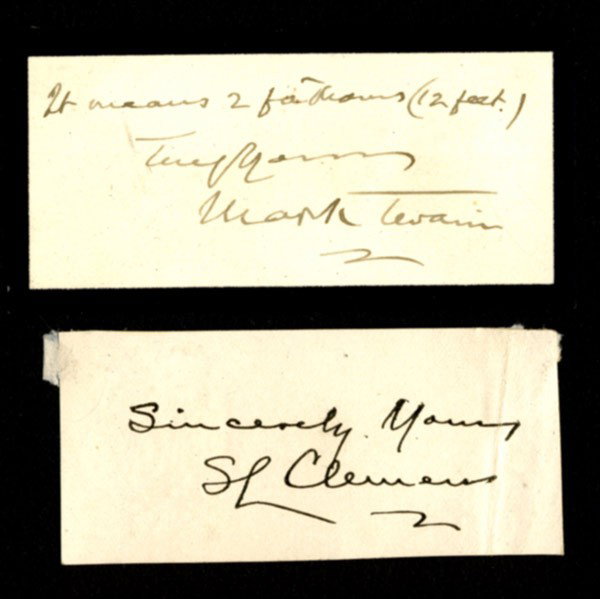 It means 2 fathoms (12 feet.)
Truly Yours
Mark Twain
Sincerely Yours
SL Clemens